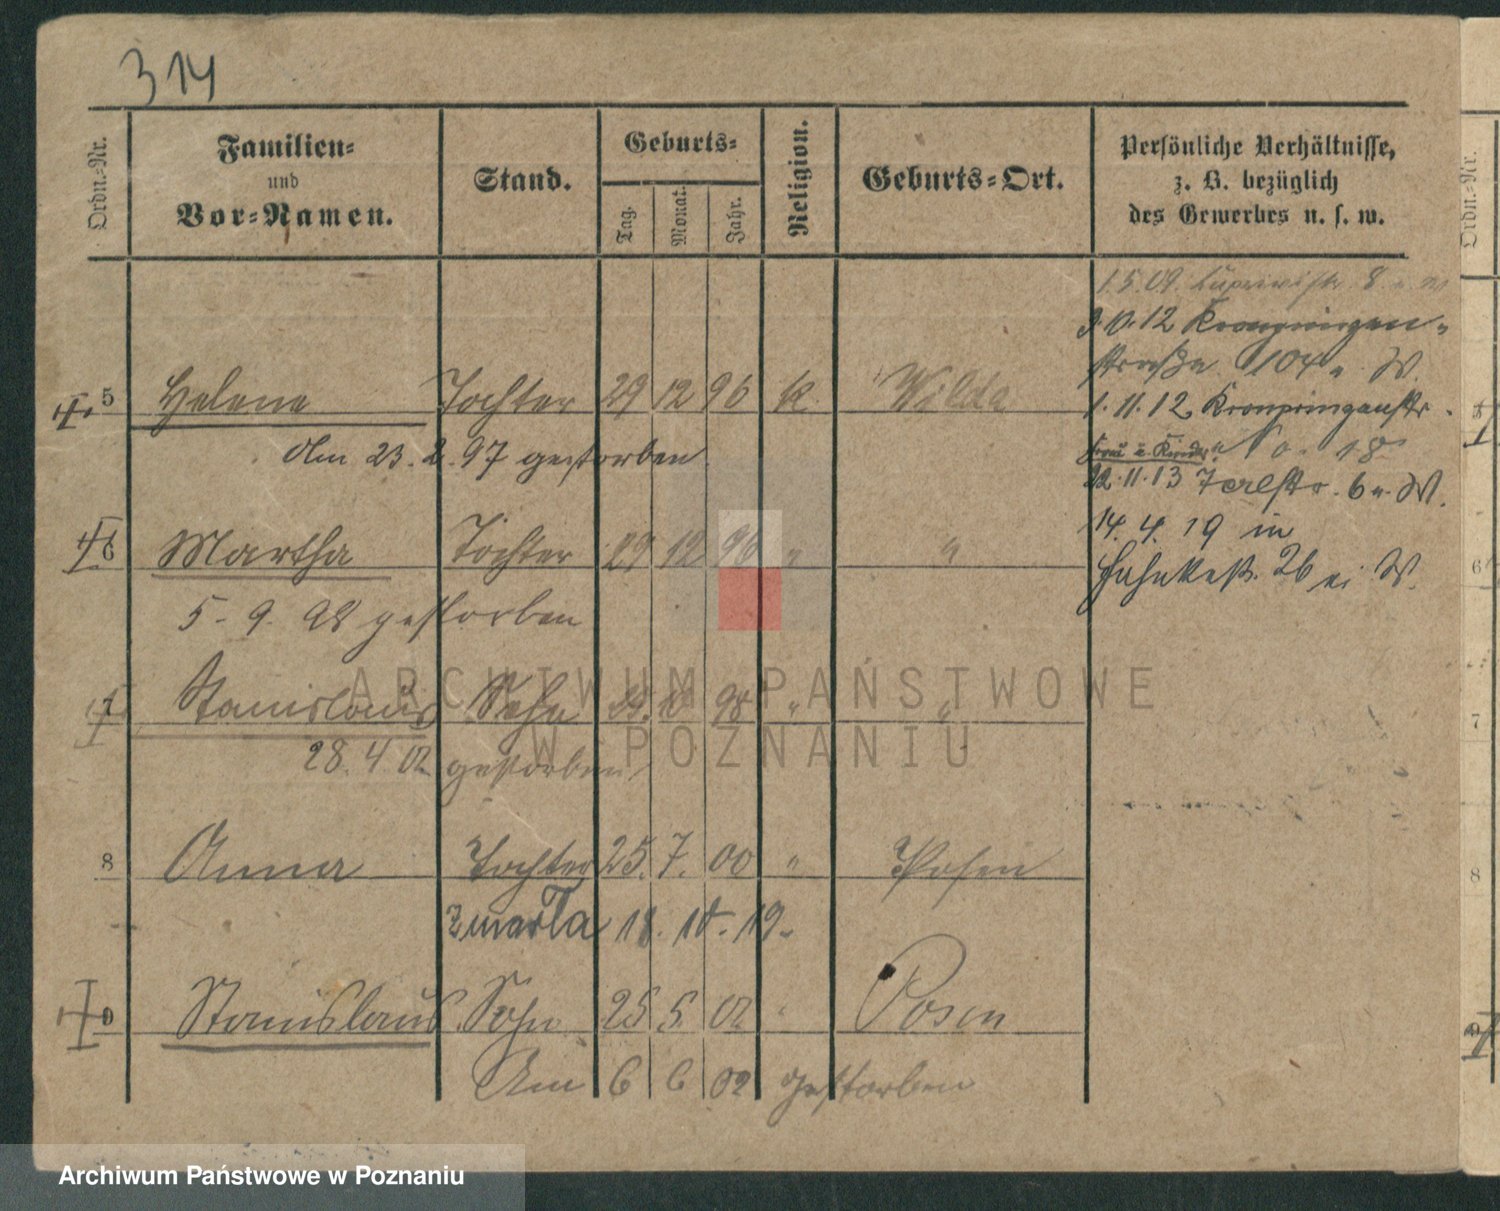 314
Ordn.-Nr.
Familien-
und
Vor-Namen.
Stand.
Geburts-
Tag.
Monat.
Jahr.
Religion.
Geburts-Ort.
Persönliche Verhältnisse,
z. B. bezüglich
des Gewerbes u. s. w.
1.5.09. 8
10.12 Kronprinzen-
straße 104 W.
1.11.12 Kronprinzenstr.
Frau u. Kinder No. 18
22.11.13 6 W.
14.4.19 in
2b W.
5 Helene Tochter 29 12 96 k Wilda
Am 23.2.97 gestorben
6 Martha Tochter 29 12 96 " "
5. 9. 98 gestorben
7 Stanislaus Sohn 98 " "
28.4.02 gestorben
8 Anna Tochter 25. 7. 00 " Posen
zmarła 18. 10. 19.
9 Stanislaus Sohn 25 5 02 " Posen
Am 6 6 02 gestorben
Ordn.-Nr.
5
6
7
8
9
ARCHIWUM PAŃSTWOWE
W POZNANIU
Archiwum Państwowe w Poznaniu